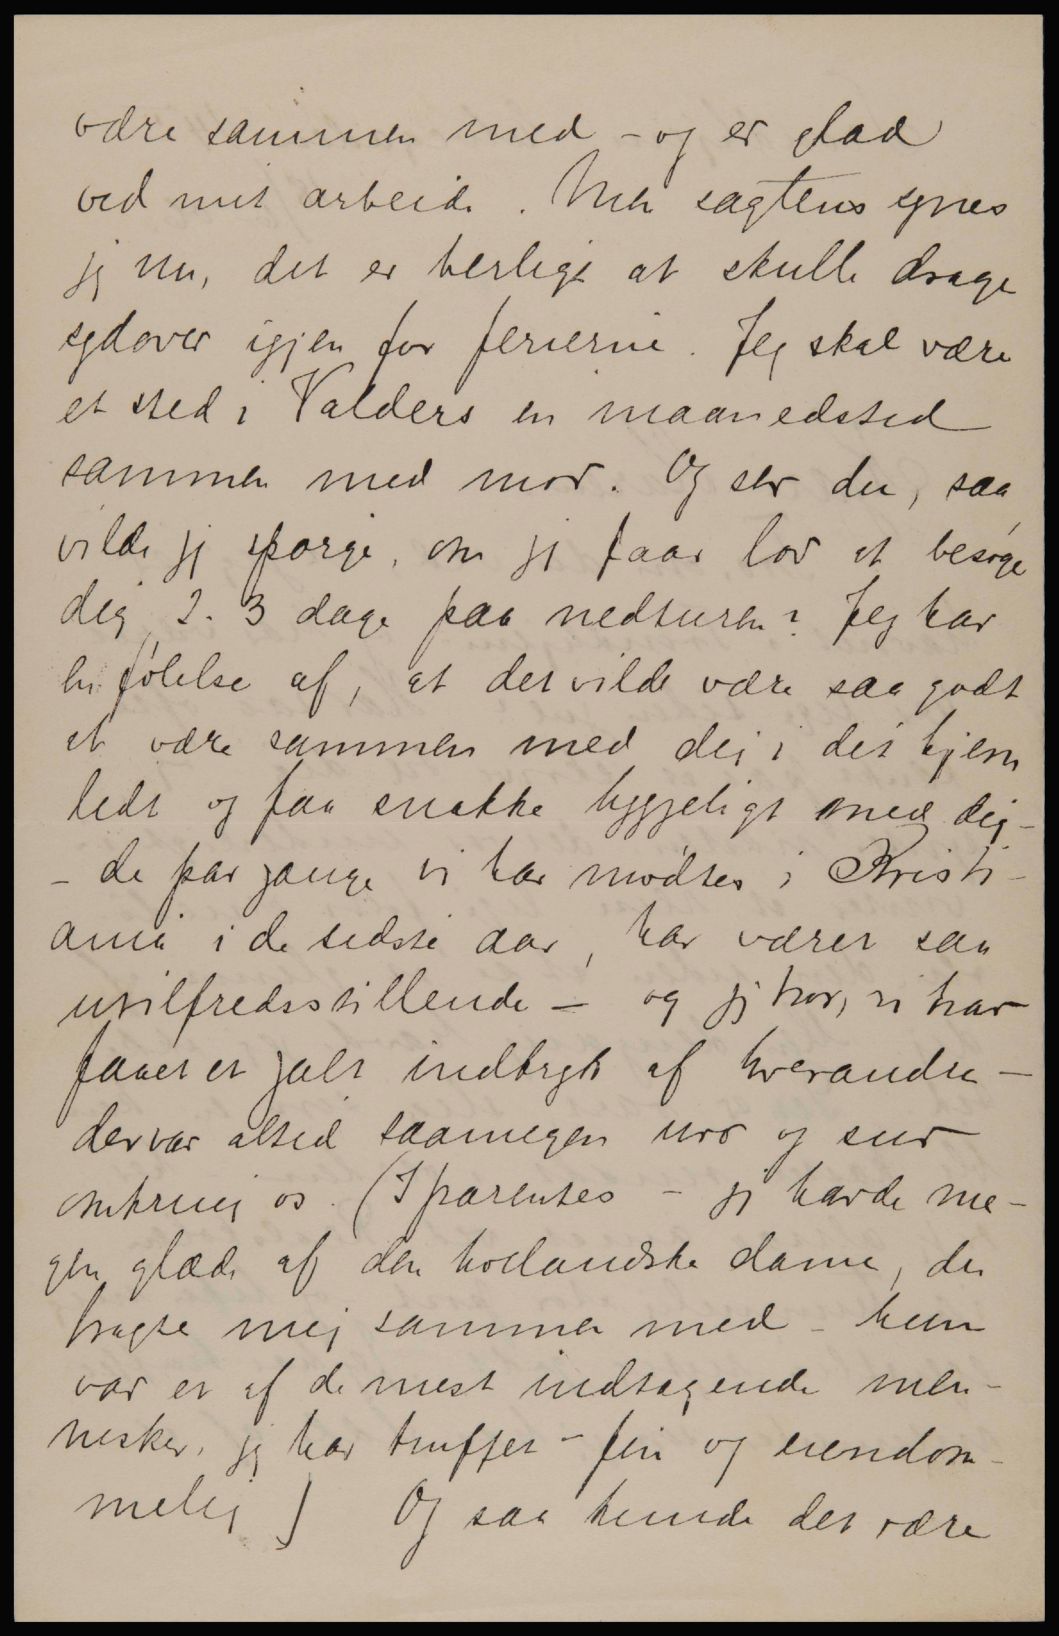 være sammen med – og er glad
ved mit arbeide. Men sagtens synes
jeg nu, det er herligt at skulle drage
sydover igjen for ferierne. Jeg skal være
et sted i Valders en maanedstid
sammen med mor. Og ser du, saa
vilde jeg spørge, om jeg faar lov at besøge
dig 2-3 dage paa nedturen? Jeg har
en følelse af, at det vilde være saa godt
at være sammen med dig i dit hjem
lidt og faa snakke hyggeligt med dig –
– de par gange vi har mødtes i Kristi-
ania i de sidste aar, har været saa
utilfredsstillende – og jeg tror, vi har
faaet et galt indtryk af hverandre –
der var altid saamegen uro og snur
omkring os. (I parentes – jeg havde me-
gen glæde af den hollandske dame, du
bragte mig sammen med – hun
var et af de mest indtagende men-
nesker, jeg har truffet – fin og eiendom-
melig) Og saa kunde det være